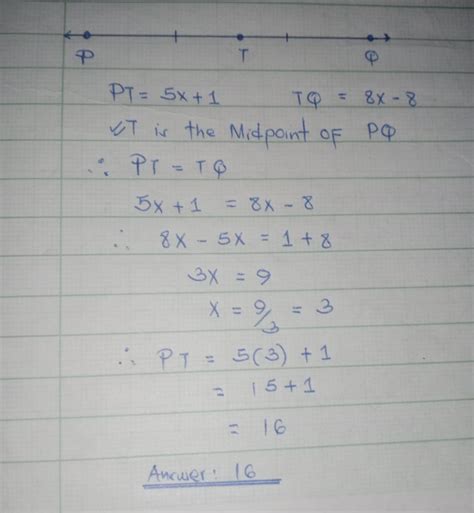 P T Q
PT = 5x+1 TQ = 8x-8
✓T is the Midpoint of PQ
∴ PT = TQ
5x+1 = 8x-8
∴ 8x - 5x = 1+8
3x = 9
x = 9/3 = 3
∴ PT = 5(3) + 1
= 15+1
= 16
Answer: 16